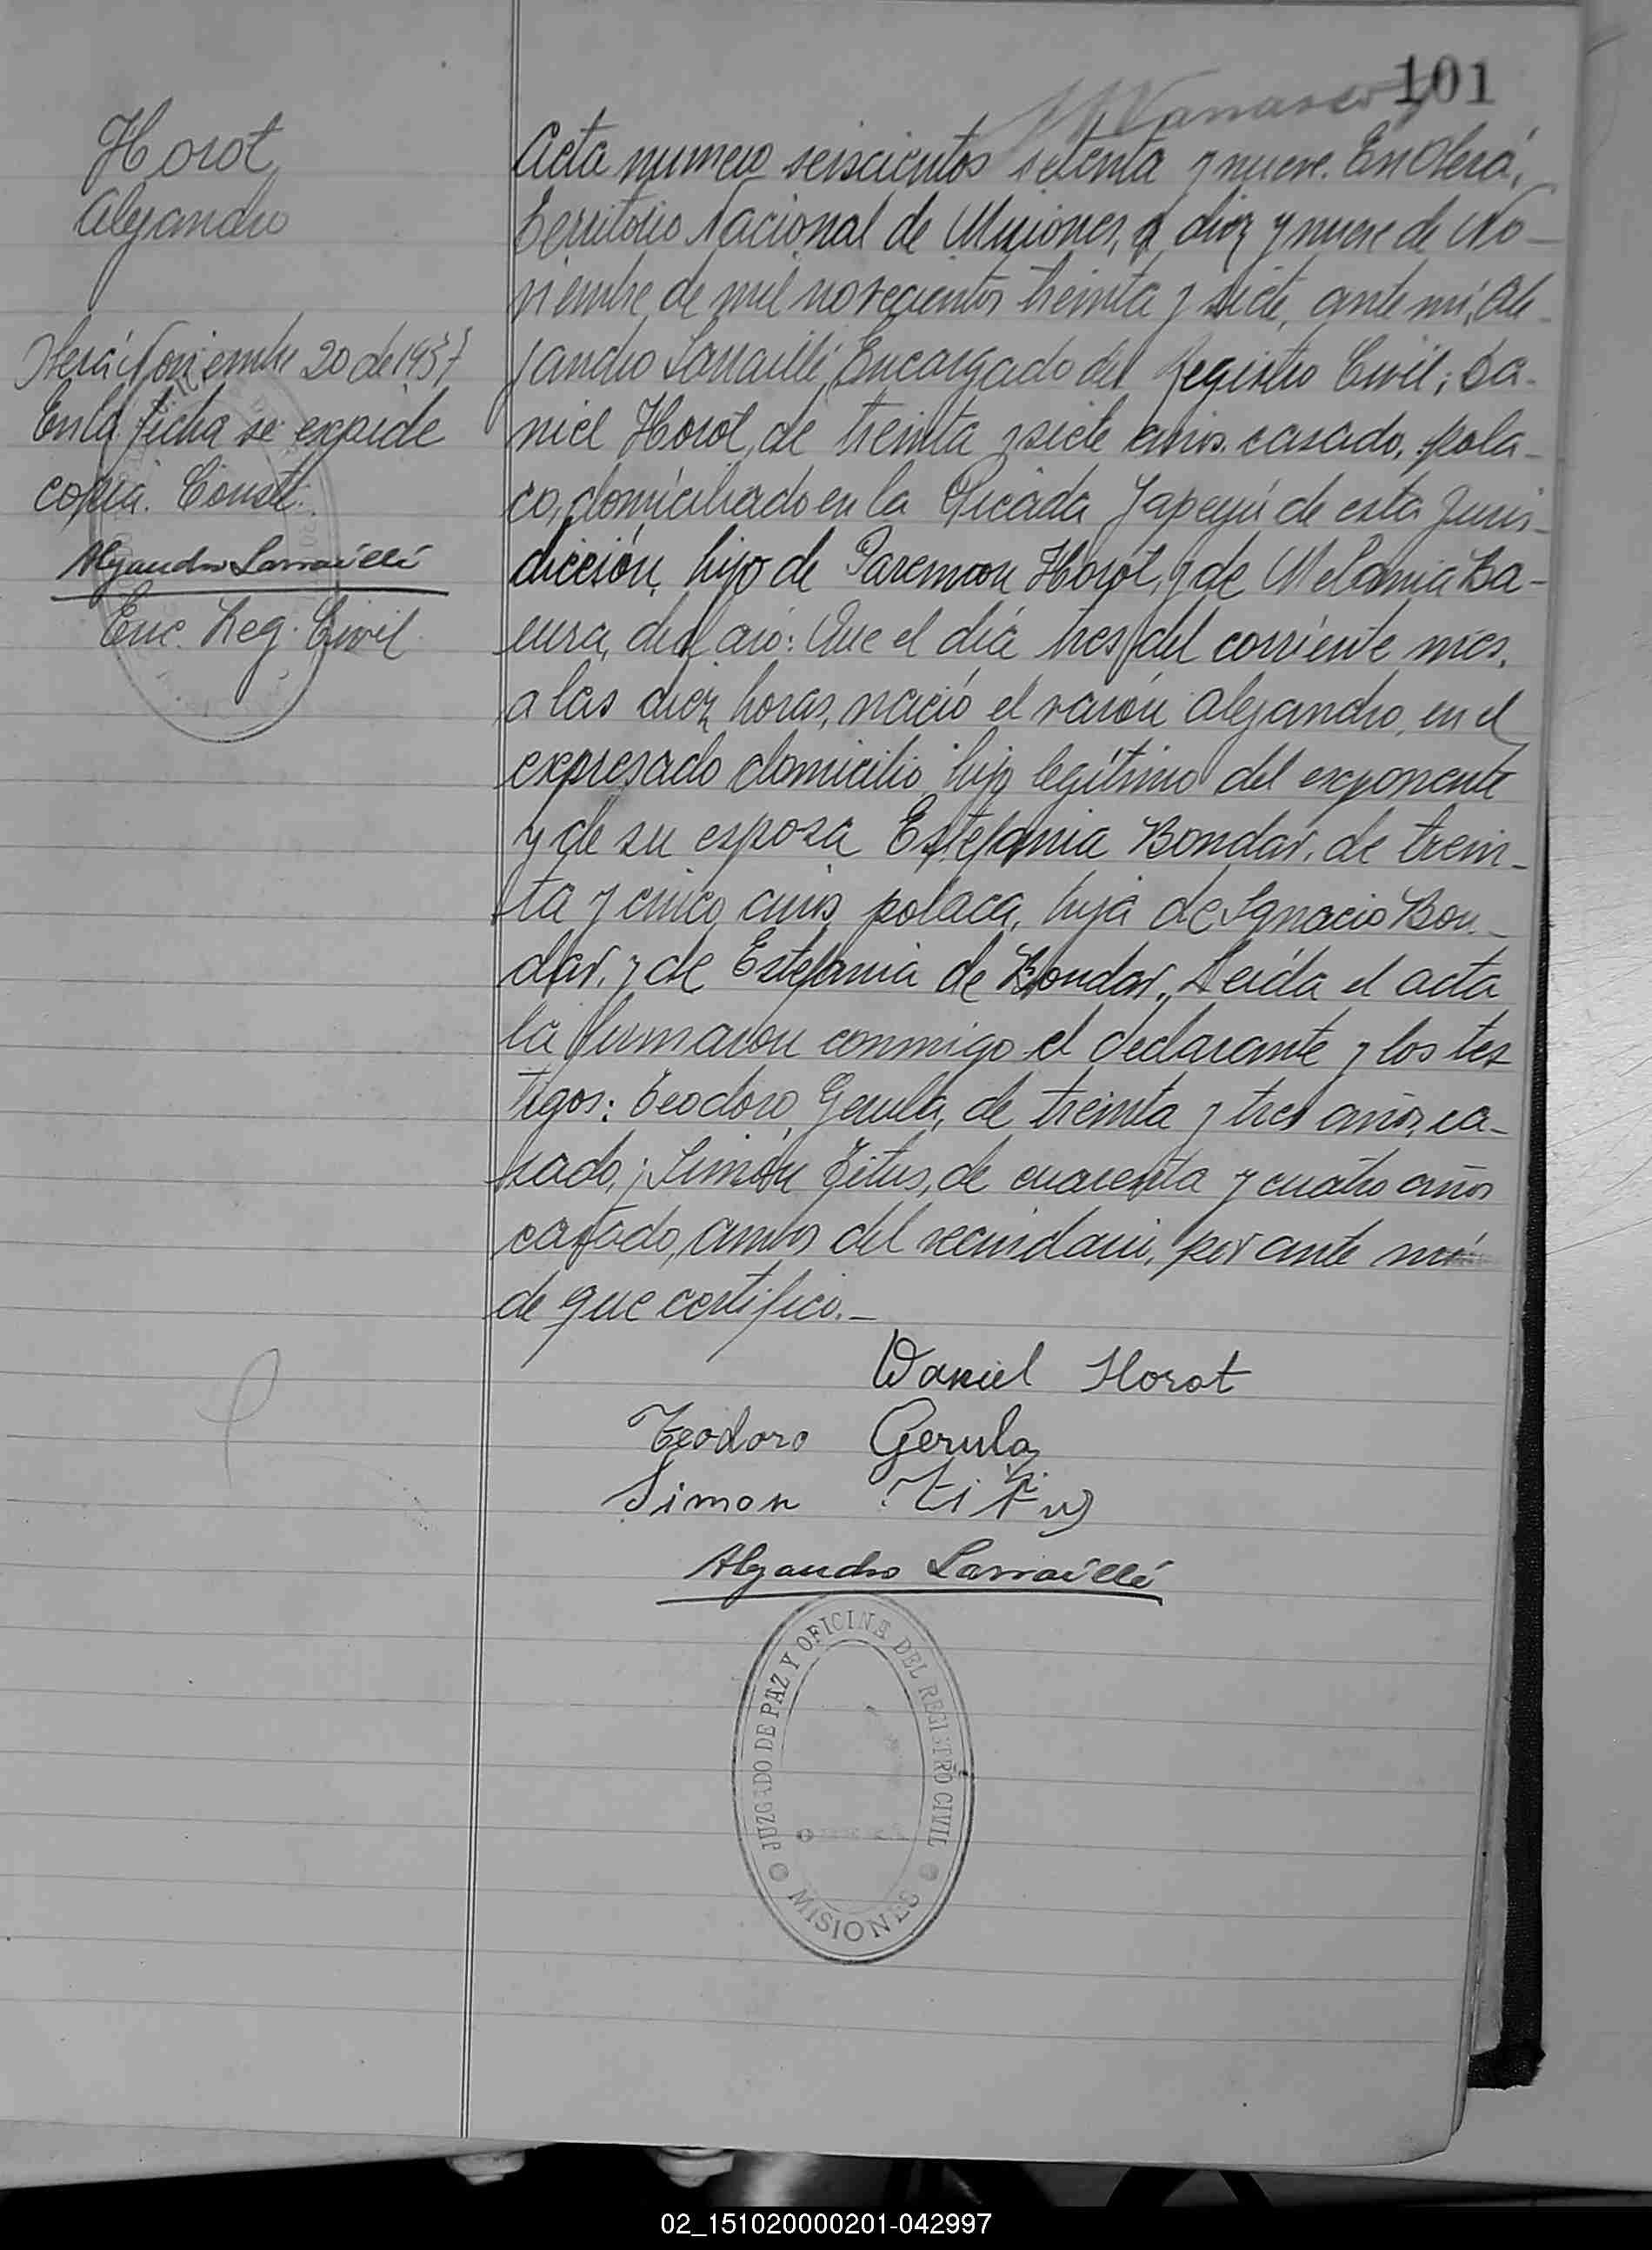 101
Horot
Alejandro
Oberá, Noviembre 20 de 1937
En la fecha se expide
copia. Conste.
Alejandro Larraíllé
Enc. Reg. Civil
Acta numero seiscientos setenta y nueve. En Oberá,
Territorio Nacional de Misiones, a diez y nueve de No-
viembre de mil novecientos treinta y siete, ante mí, Ale-
jandro Larraíllé Encargado del Registro Civil; Da-
niel Horot, de treinta y siete años. casado, pola-
co, domiciliado en la Picada Yapeyú de esta Juris-
dicción, hijo de Paremon Horot, y de Melania Ba-
, declaró: Que el día tres del corriente mes,
a las diez horas, nació el varón Alejandro, en el
expresado domicilio, hijo legítimo del exponente
y de su esposa Estefania Bondar, de trein-
ta y cinco años, polaca, hija de Ignacio Bon-
dar, y de Estefania de Bondar. Leída el acta
la firmaron conmigo el declarante y los tes
tigos: Teodoro Gerula, de treinta y tres años, ca-
sado, y Simón Titus, de cuarenta y cuatro años
casado, ambos del vecindario, por ante mí
de que certifico.-
Daniel Horot
Teodoro Gerula
Simon Titus
Alejandro Larraíllé
JUZGADO DE PAZ Y OFICINA DEL REGISTRO CIVIL
MISIONES
02_151020000201-042997